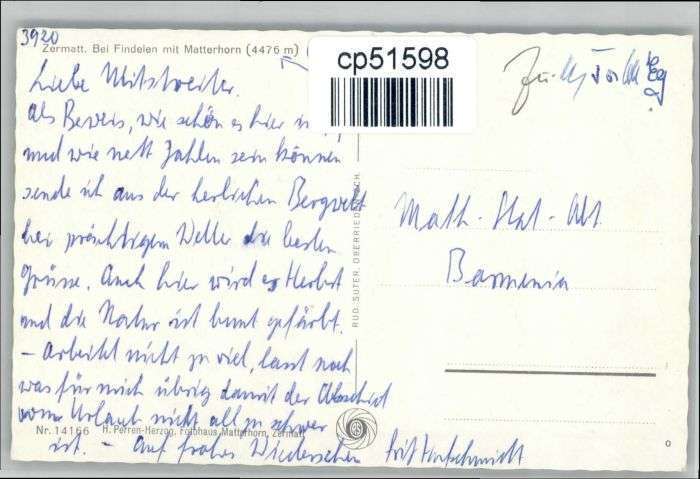 3920
Zermatt. Bei Findelen mit Matterhorn (4476 m)
cp51598
Liebe Mitstreiter.
Als Beweis, wie schön es hier
und wie nett Zahlen sein können
sende ich aus der herlichen Bergwelt
bei prächtigem Wetter die besten
Grüsse. Auch hier wird es Herbst
und die Natur ist bunt gefärbt.
- Arbeitet nicht zu viel, lasst noch
was für mich übrig damit der Abschied
vom Urlaub nicht all zu schwer
ist. - Auf frohes Wiedersehen
Math.-Stat-Abt.
Barmenia
RUD. SUTER, OBERRIEDEN-ZCH.
Nr. 14166 H. Perren-Herzog, Fotohaus Matterhorn, Zermatt